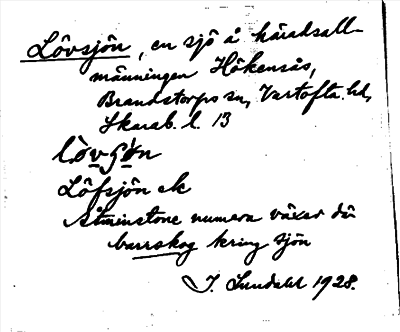 Lövsjön, en sjö å häradsall-
männingen Hökensås,
Brandstorps sn, Vartofta hd,
Skarab. l. 13
lòvʂ̣ön
Löfsjön ek
Åtminstone numera växer där
barrskog kring sjön
J. Sundahl 1928.